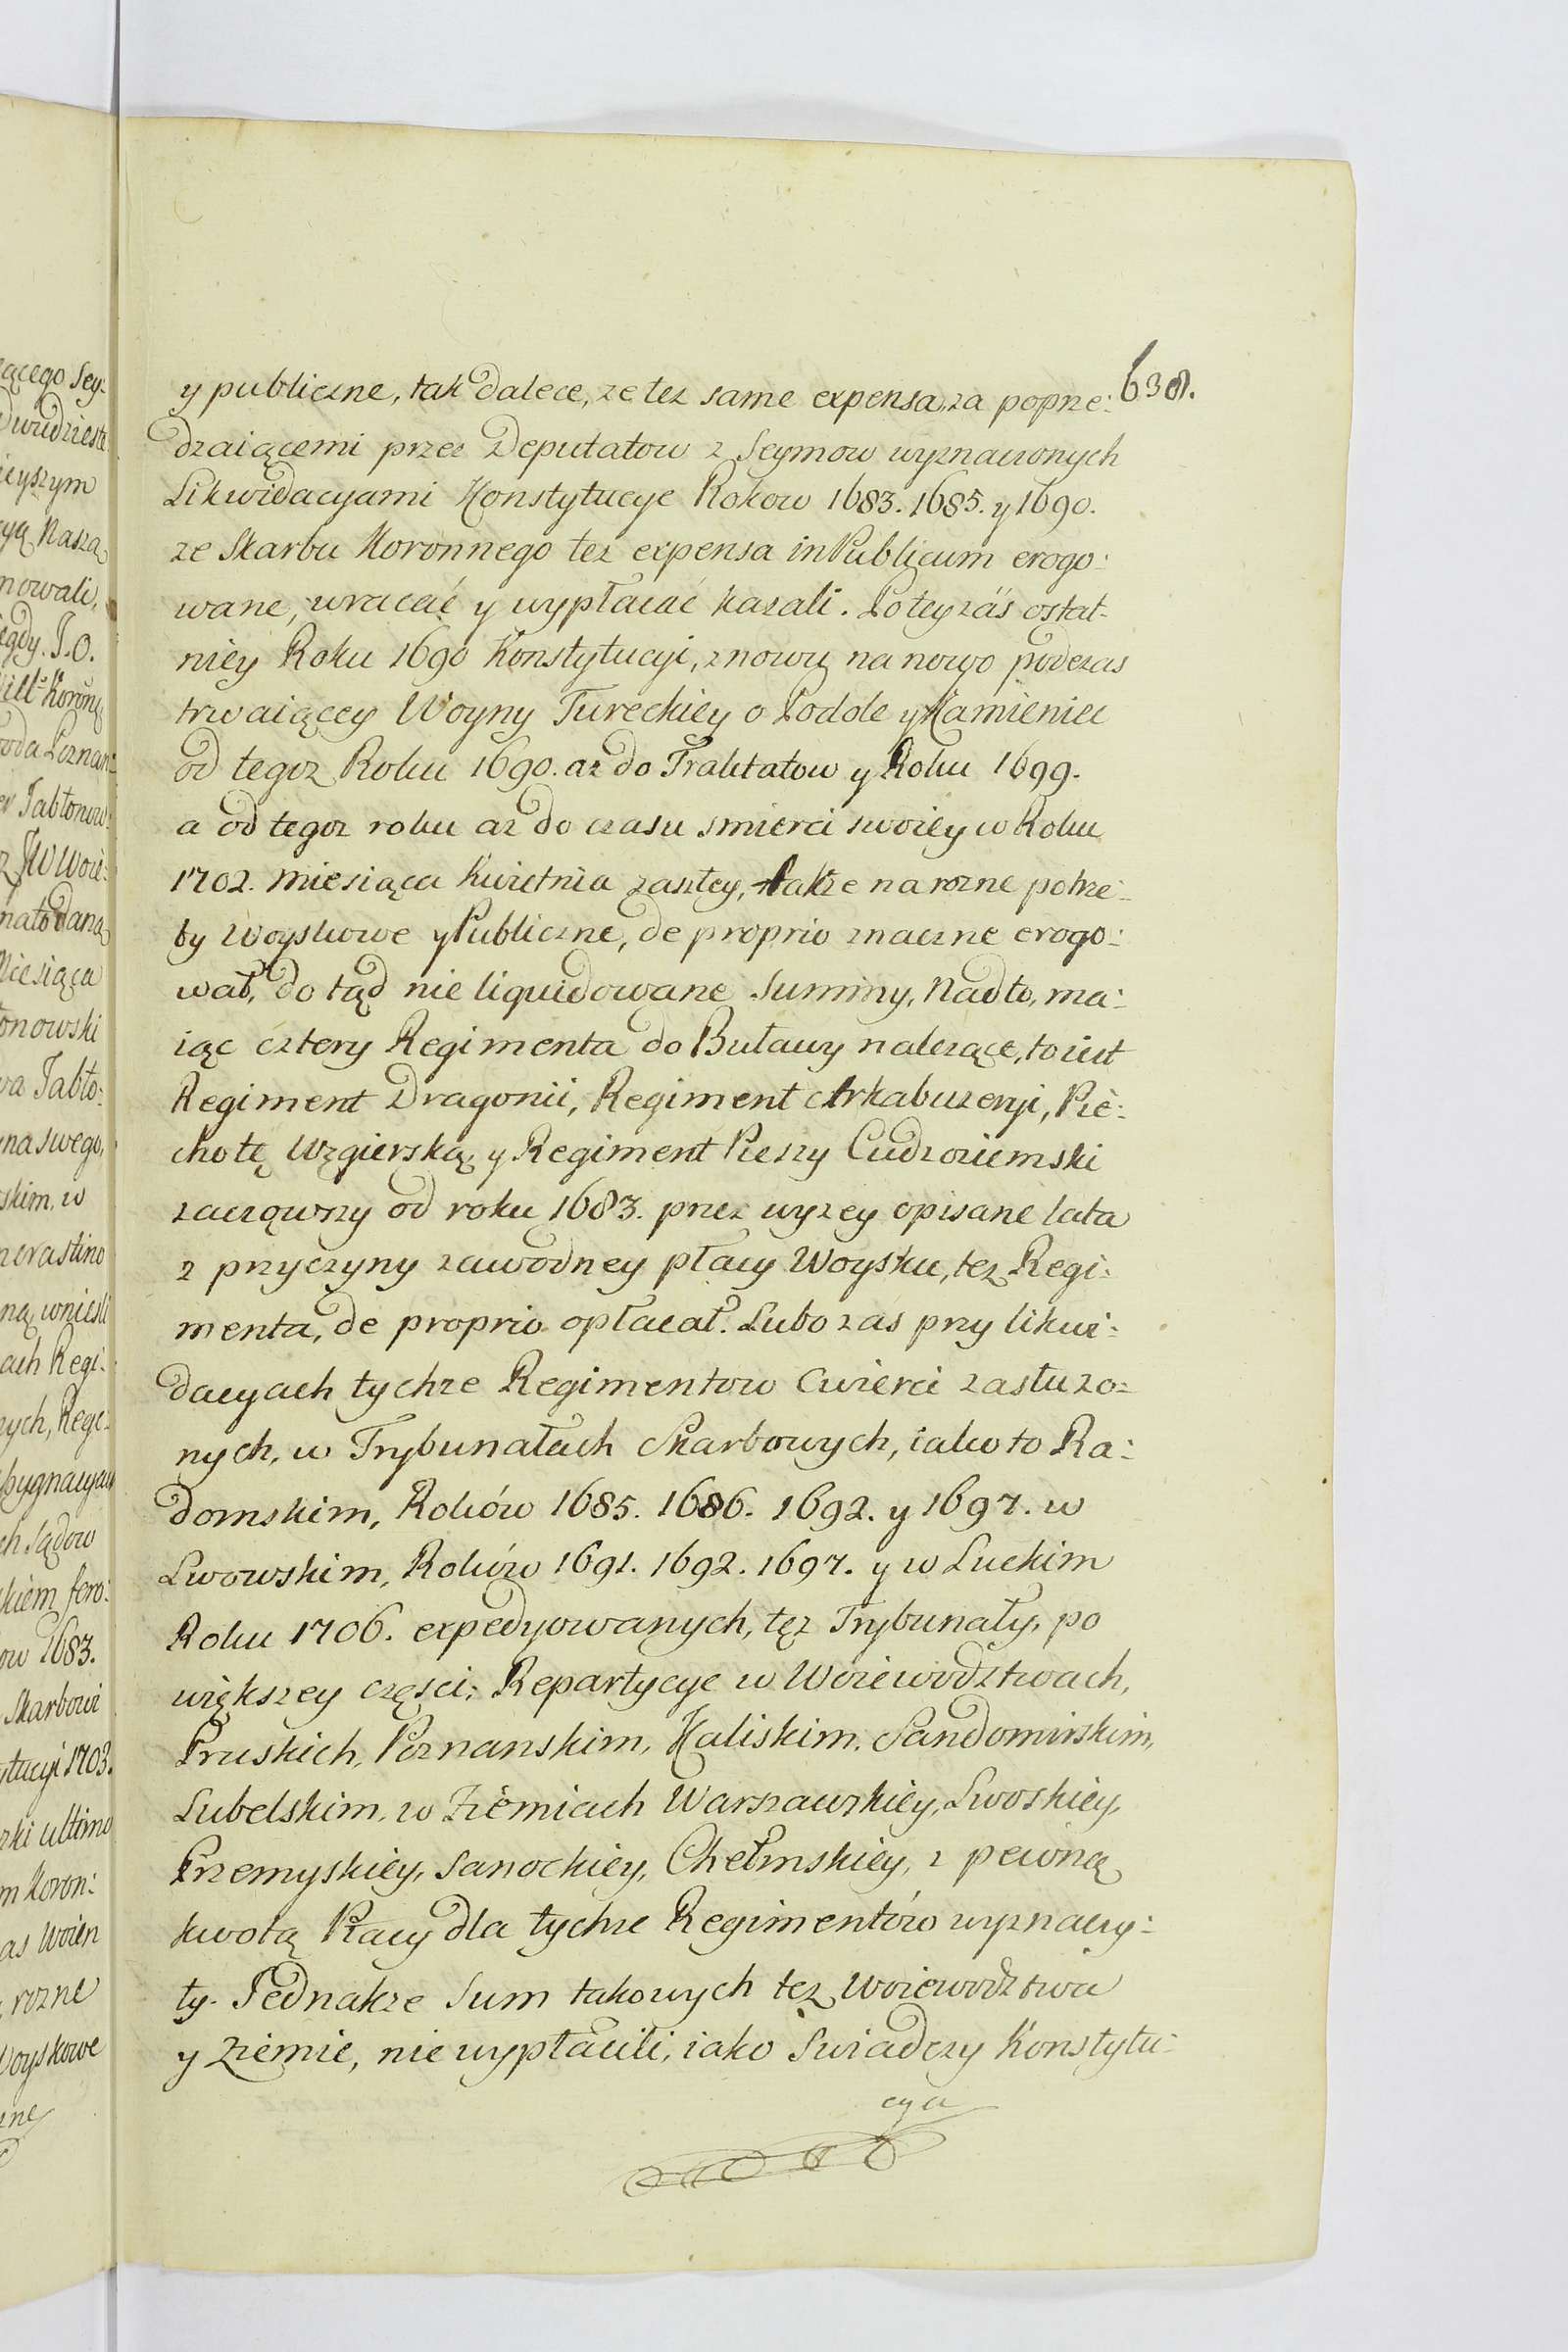 638.
y publiczne, tak dalece, ze tez same expensa, za poprze:
dzaiącemi przez Deputatow z Seymow wyznaczonych
Likwidacyami Konstytucye Rokow 1683. 1685. y 1690.
ze Skarbu Koronnego tez expensa in Publicum erogo:
wane, wracać y wypłacać kazali. Po tey záś ostat-
niey Roku 1690 Konstytucyi, znowu na nowo podczas
trwaiącey Woyny Tureckiey o Podole y Kamieniec
od tegoz Roku 1690. az do Traktatow y Roku 1699.
a od tegoz roku az do czasu smierci swoiey w Roku
1702. miesiąca Kwietnia zaszłey, także na rozne potrze:
by Woyskowe y Publiczne, de proprio znaczne erogo:
wał, do tąd nie liquidowane Summy, Nadto, ma:
iąc cztery Regimenta do Buławy nalezące, to iest
Regiment Dragonii, Regiment Arkabuzeryi, Pie:
chotę Węgierską y Regiment Pieszy Cudzoziemski
zacząwszy od roku 1683. przez wyzey opisane lata
z przyczyny zawodney płacy Woysku, tez Regi:
menta, de proprio opłacał. Lubo zas przy likwi:
dacyach tychze Regimentow Cwierci zasłuzo:
nych, w Trybunałach Skarbowych, iako to Ra:
domskim, Roków 1685. 1686. 1692. y 1697. w
Lwowskim, Roków 1691. 1692. 1697. y w Luckim
Roku 1706. expedyowanych, tęz Trybunały, po
większey części; Repartycye w Woiewodztwach,
Pruskich, Poznanskim, Kaliskim, Sandomirskim,
Lubelskim, w Ziemiach Warszawskiey, Lwoskiey,
Przemyskiey, Sanockiey, Chełmskiey, z pewną
kwotą Płacy dla tychze Regimentów wyznaczy:
ły. Jednakze Sum takowych tez Woiewodztwa
y Ziemie, nie wypłacili, iako Swiadczy Konstytu:
cya